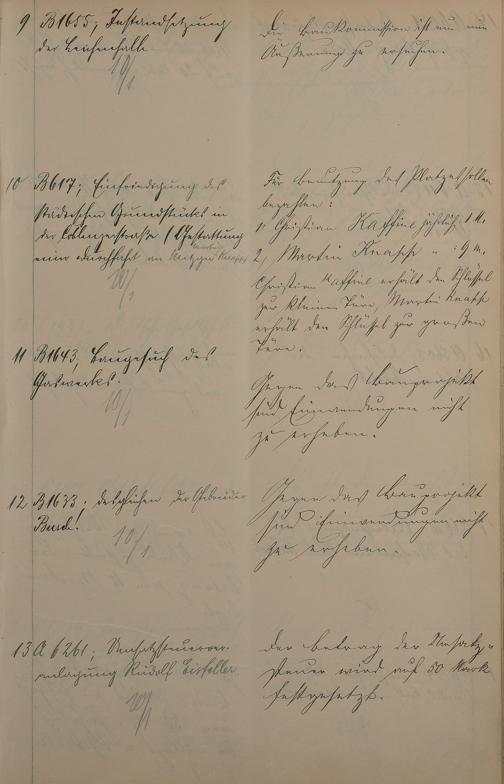 9 B1655, Instandsetzung
der Leichenhalle.
10/1
Die Baukommission ist um eine
Äußerung zu ersuchen.
10 B617; Einfriedigung des
städtischen Grundstücks in
der Coblenzerstraße / Gestattung
einer Durchfahrt an Metzger Martin Knapp
10/1
Für Benutzung des Platzes sollen
bezahlen:
1, Christian Kaffine jährlich 1 M.
2, Martin Knapp " : 9 M.
Christian Kaffine erhält den Schlüssel
zur kleinen Türe, Martin Knapp
erhält den Schlüssel zur großen
Türe.
11 B1643, Baugesuch des
Gaswerks.
10/1
Gegen das Bauprojekt
sind Einwendungen nicht
zu erheben.
12 B1633; desgleichen der Gebrüder
Busch!
10/1
Gegen das Bauprojekt
sind Einwendungen nicht
zu erheben.
13 A 6261; Umsatzsteuerver-
anlagung Rudolf Eisfeller
10/1
Der Betrag der Umsatz-
steuer wird auf 50 Mark
festgesetzt.